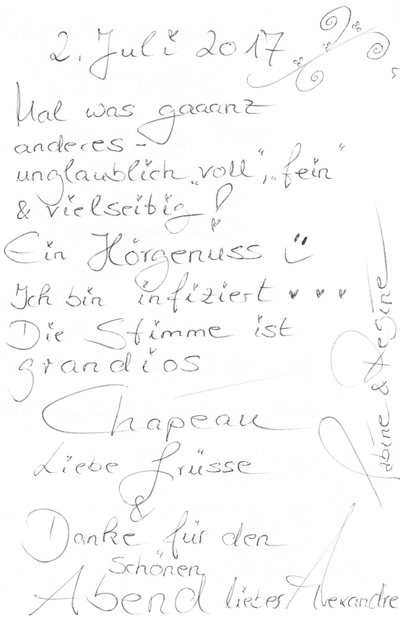 2. Juli 2017
Mal was gaaanz
anderes -
unglaublich „voll“, „fein“
& vielseitig!
Ein Hörgenuss
Ich bin infiziert ♥ ♥ ♥
Die Stimme ist
grandios
Chapeau
Liebe Grüsse
&
Danke für den
schönen
Abend lieber Alexandre
Sabine & Regine